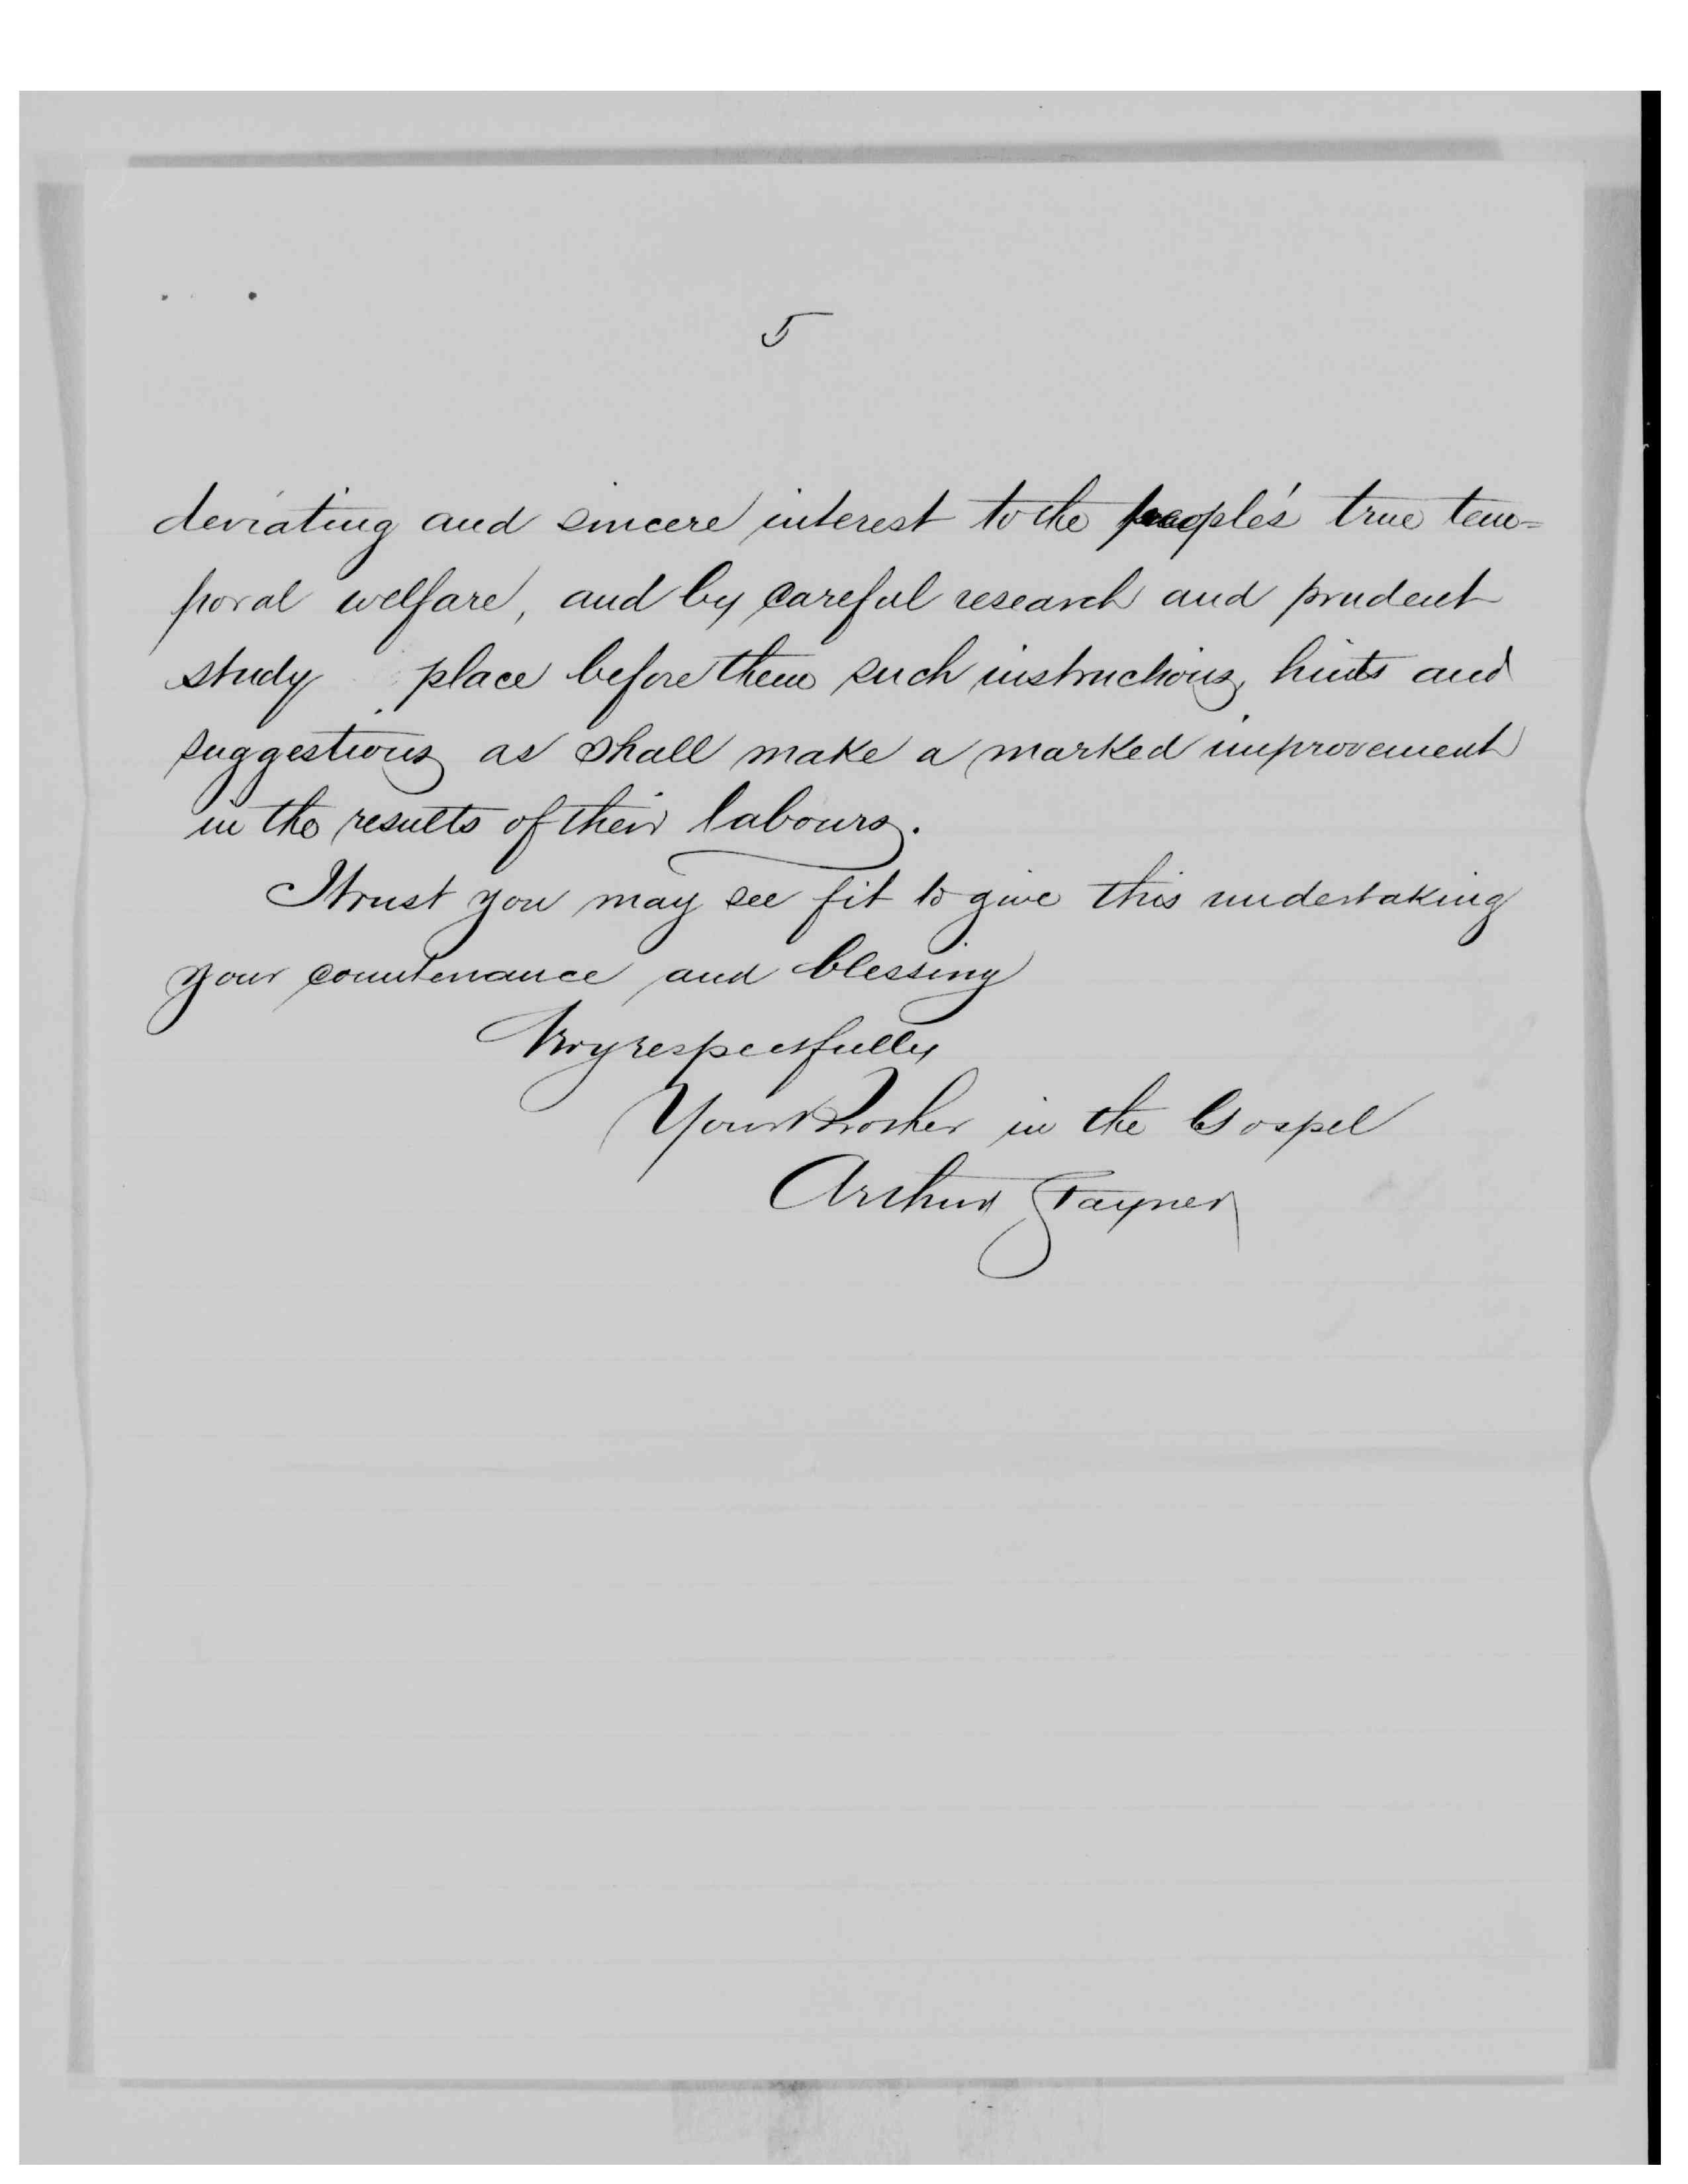 5
deviating and sincere interest to the people's true tem=
poral welfare, and by careful research and prudent
study place before them such instructions, hints and
suggestions as shall make a marked improvement
in the results of their labours.
I trust you may see fit to give this undertaking
your countenance and blessing
Very respectfully
Your Brother in the Gospel
Arthur Stayner